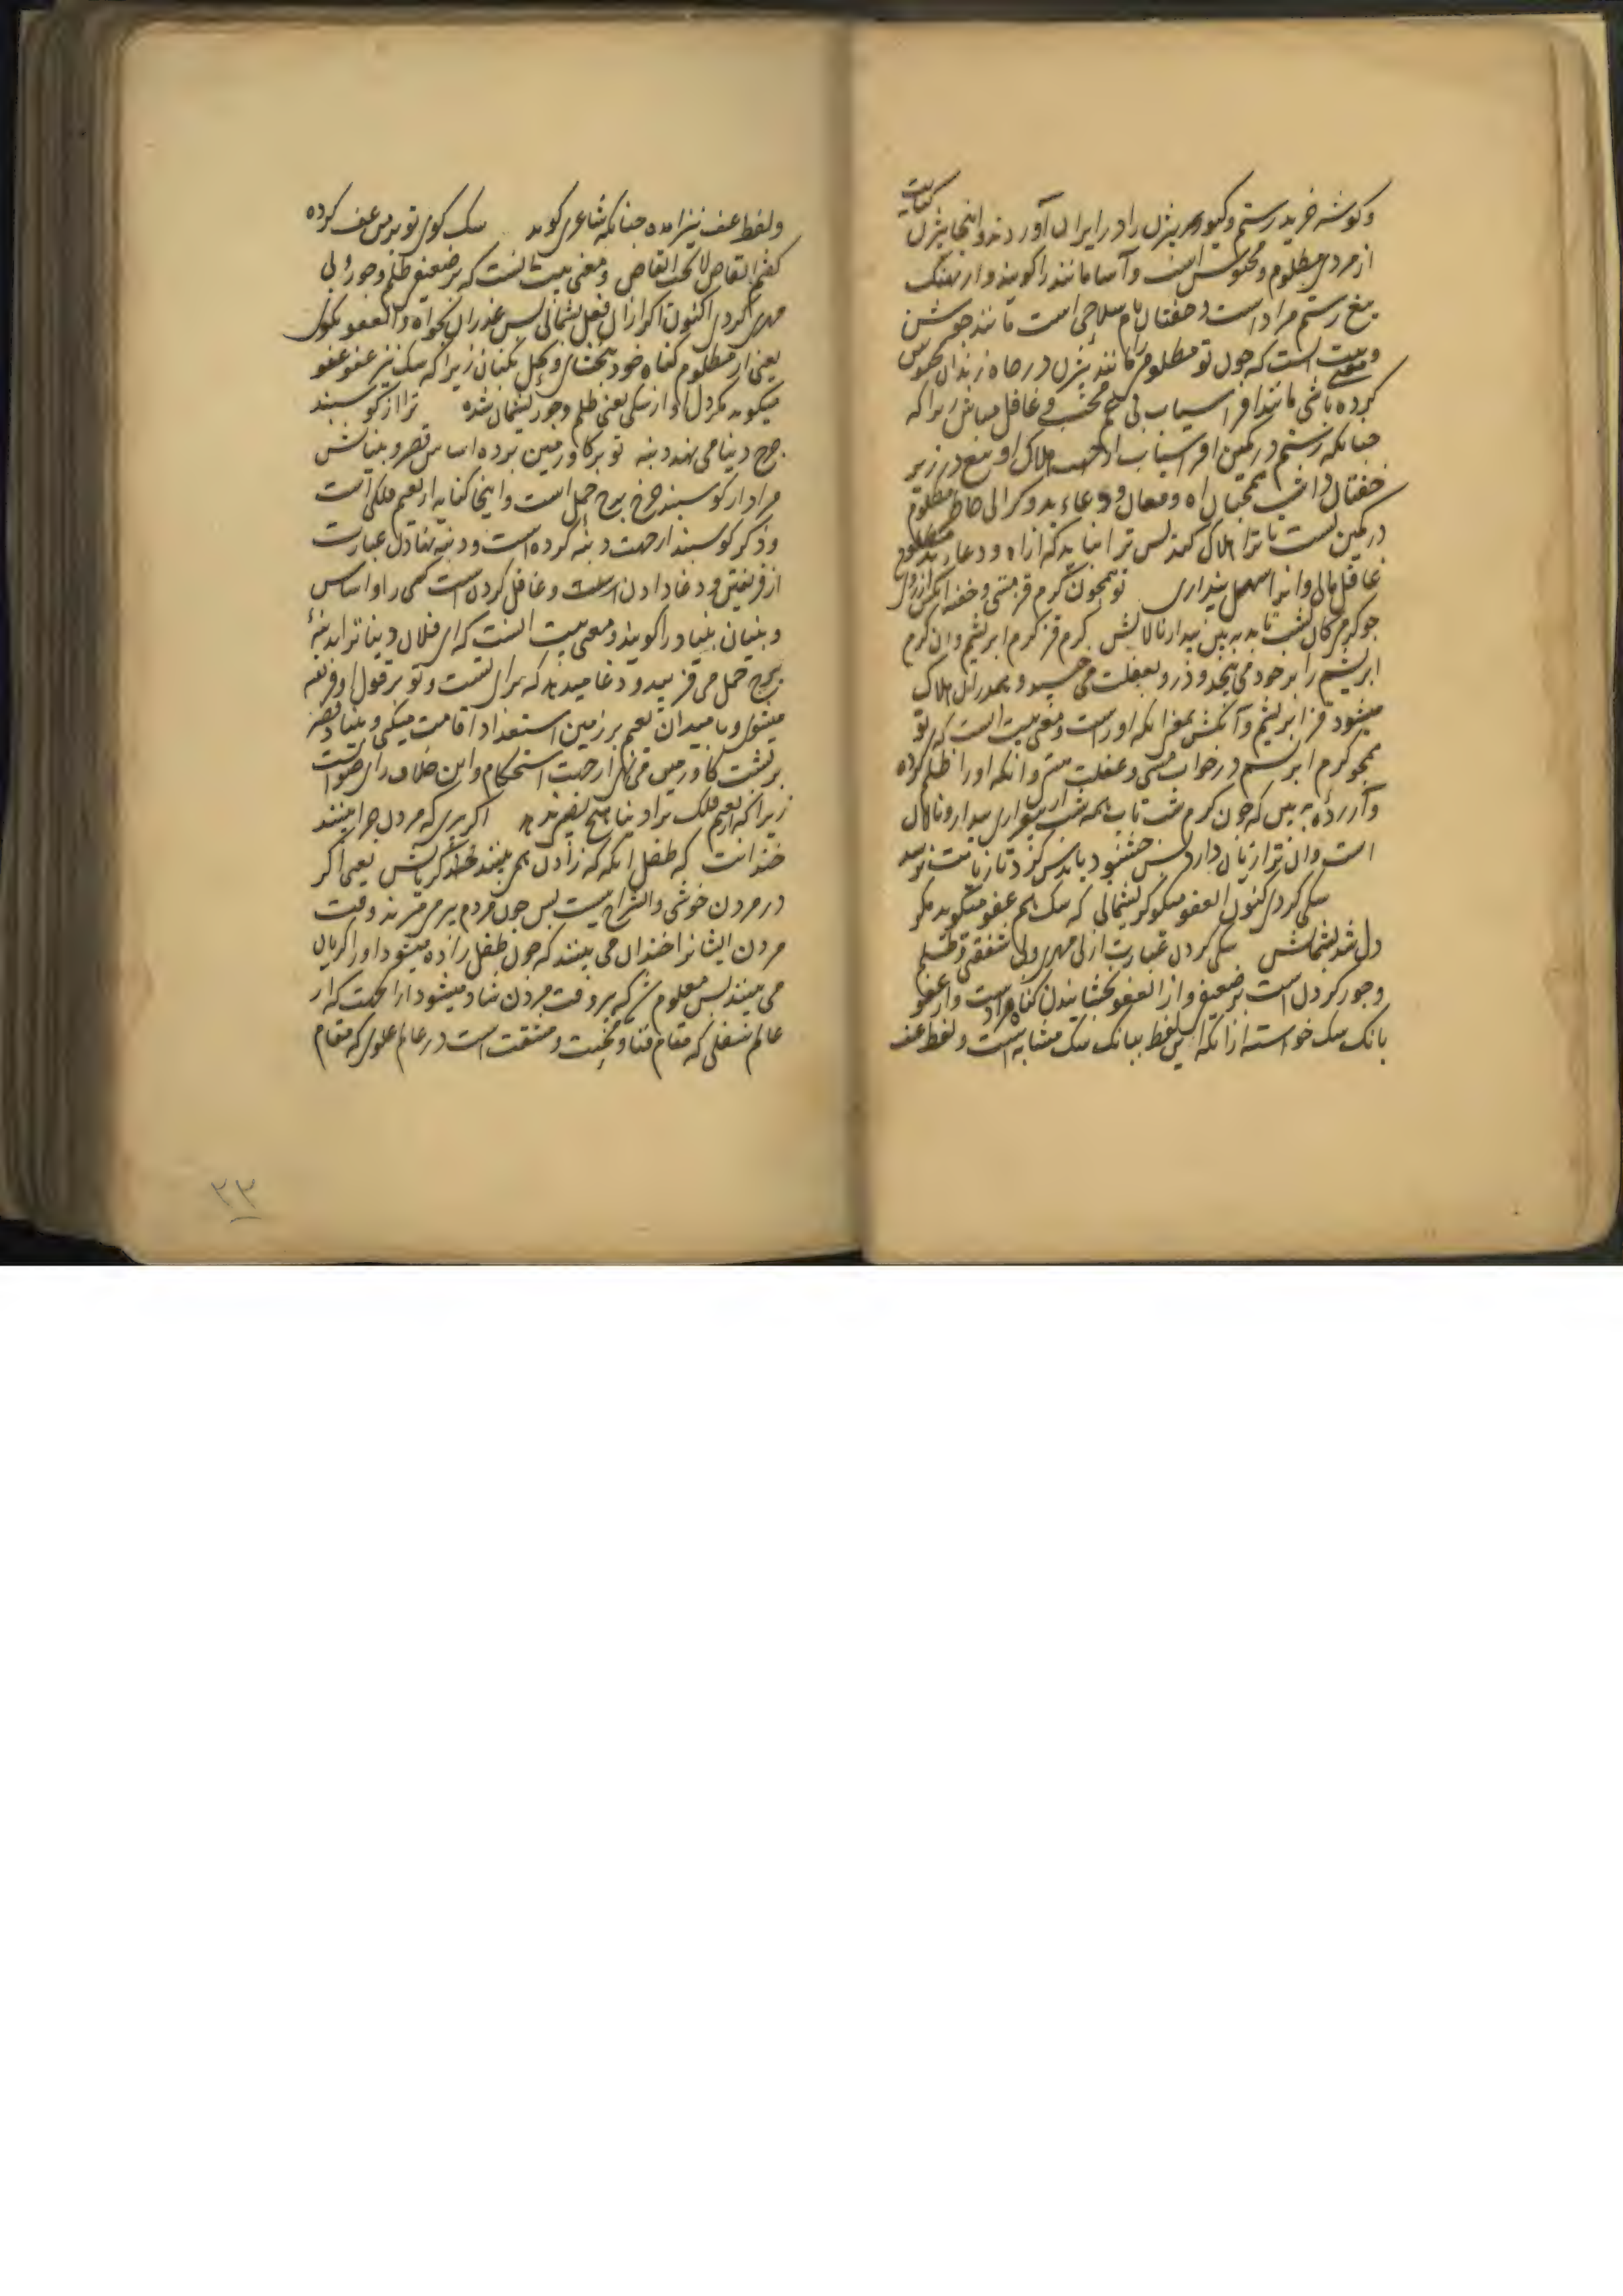 و کوشه خرید رستم و کیو بیژن را در ایران آوردند و اینجا بیژن کنایت
از مردی مظلوم و محبوس است و آسا مانند را کویند و از نهنک
تیغ رستم مراد است و خفتان نام سلاحی است مانند جوشن
و معنی بیت است که چون تو مظلومی را مانند بیژن در چاه زندان محبوس
کرده باشی مانند افراسیاب بی غم مخسب و غافل مباش زیرا که
چنانکه رستم در کمین افراسیاب از جهت هلاک او تیغ در زیر
خفتان داشت همچنان آه و فغان و دعاء بد و کرانی خاطر مظلوم
در کمین تست تا ترا هلاک کند پس ترا نباید که از آه و دعاء بد مظلوم
غافل مانی و آنرا سهل پنداری تو همچون کرم قز مستی و خفته آنکس از رول
چو کرم کان لشب تا به بین بیدار نالانش کرم قز کرم ابریشم و آن کرم
ابریشم را بر خود می پیچد و درو بغفلت می خسپد و هم در آن هلاک
میشود قز ابریشم و آنکش بمعنی آنکه او راست و معنی بیت است که تو
همچو کرم ابریشم در خواب مستی و غفلت هستی و آنکه او را ظلم کرده
و آزرده به بین که چون کرم شب تاب همه شب از بیقراری بیدار و نالان
است و آن ترا زیان دارد پس خشنود باید کرد تا زیانت نرسد
سکی کردی کنون العفو میکو کر پشیمانی که سک هم عفو میکوید مکر
دل شد پشیمانش سکی کردن عبارت از بی مهری و بی شفقتی و ظلم
و جور کردن است بر ضعیف و از العفو بخشانیدن کناه مراد است و از عفو
بانک سک خواسته از آنکه این لفظ ببانک سک مشابه است و لفظ عف
و لفظ عف نیز آمده چنانکه شاعری کوید سک کوی تو بر من عف کرده
کفتم القاص لا یحب القاص و معنی بیت آنست که بر ضعیف ظلم و جور و بی
مهری کردی اکنون اکر از آن فعل پشمانی پس عذر آن بخواه و العفو بکوی
یعنی از مظلوم کناه خود بخشای و بحل بکنان زیرا که سک نیز عفو عفو
میکوید مکر دل او از سکی یعنی ظلم و جور پشیمان شده ترا از کوسپند
چرخ دنیا می نهد دنبه تو بر کاو زمین برده اساس قصر و بنیانش
مراد از کوسپند چرخ برج حمل است و اینجا کنایه از نعیم فلکی است
و ذکر کوسپند از جهت دنبه کرده است و دنبه نهادن عبارت
از فریفتن و دغا دادن است و غافل کردن است کسی را و اساس
و بنیان بنیاد را کویند و معنی بیت آنست که ای فلان دنیا ترا دنبهٔ
برج حمل می فریبد و دغا میدهد که برای تست و تو بر قول او فریفته
میشوی و بامید آن نعیم بر زمین استعداد اقامت میکنی و بنیاد قصر
بر پشت کاو زمین می نهی از جهت استحکام و این خلاف رای صوابست
زیرا که از نعیم فلک ترا دنیا هیچ نصیب ندهد اکر پرسی که مردن چرا بینند
خندانت که طفل آنکه که زادن هم بینند لحظه کریانش یعنی اکر
در مردن خوشی و انشراح نیست پس چون مردم پیر می میرند وقت
مردن ایشانرا خندان می بینند که چون طفل زاده میشود او را کریان
می بینند پس معلوم شد که پیر وقت مردن شاد میشود از آنجهت که از
عالم سفلی که مقام فنا و محنت و مشقت است در عالم علوی که مقام
۲۳